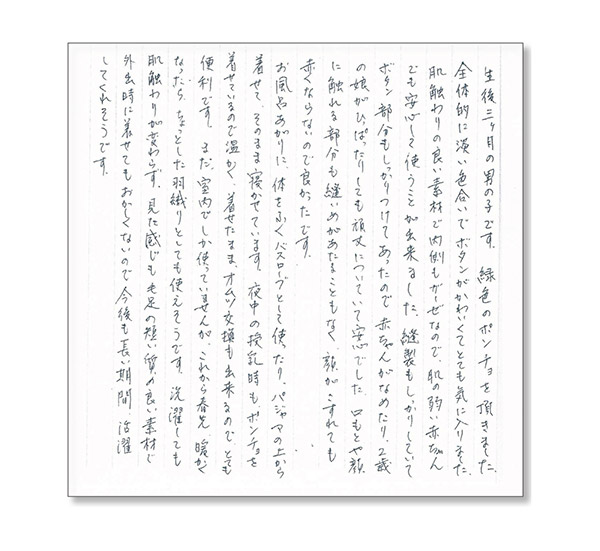 生後三ヶ月の男の子です。緑色のポンチョを頂きました。
全体的に淡い色合いでボタンがかわいくてとても気に入りました。
肌触りの良い素材で内側もガーゼなので、肌の弱い赤ちゃん
でも安心して使うことが出来ました。縫製もしっかりしていて
ボタン部分もしっかりつけてあったので赤ちゃんがなめたり、2歳
の娘がひっぱったりしても頑丈についていて安心でした。口もとや顔
に触れる部分も縫いめがあたることもなく、顔がこすれても
赤くならないので良かったです。
お風呂あがりに、体をふくバスローブとして使ったり、パジャマの上から
着せて、そのまま寝かせています。夜中の授乳時もポンチョを
着せているので温かく、着せたままオムツ交換も出来るのでとても
便利です。まだ、室内でしか使っていませんが、これから春先、暖かく
なったら、ちょっとした羽織りとしても使えそうです。洗濯しても
肌触わりが変わらず、見た感じも毛足の短い質の良い素材で
外出時に着せてもおかしくないので今後も長い期間活躍
してくれそうです。